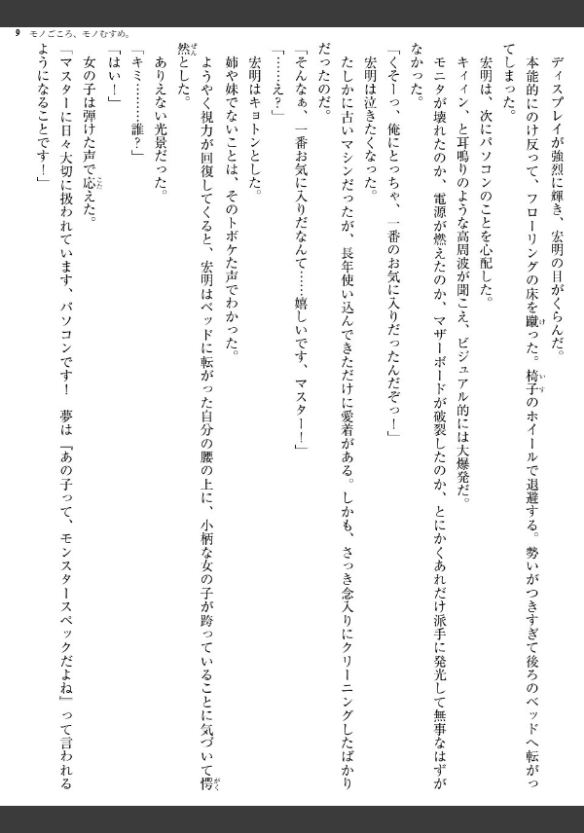 9 モノごころ、モノむすめ。
ディスプレイが強烈に輝き、宏明の目がくらんだ。
本能的にのけ反って、フローリングの床を蹴った。椅子のホイールで退避する。勢いがつきすぎて後ろのベッドへ転がっ
てしまった。
宏明は、次にパソコンのことを心配した。
キィィン、と耳鳴りのような高周波が聞こえ、ビジュアル的には大爆発だ。
モニタが壊れたのか、電源が燃えたのか、マザーボードが破裂したのか、とにかくあれだけ派手に発光して無事なはずが
なかった。
「くそーっ、俺にとっちゃ、一番のお気に入りだったんだぞっ!」
宏明は泣きたくなった。
たしかに古いマシンだったが、長年使い込んできただけに愛着がある。しかも、さっき念入りにクリーニングしたばかり
だったのだ。
「そんなぁ、一番お気に入りだなんて……嬉しいです、マスター!」
「……え?」
宏明はキョトンとした。
姉や妹でないことは、そのトボケた声でわかった。
ようやく視力が回復してくると、宏明はベッドに転がった自分の腰の上に、小柄な女の子が跨っていることに気づいて愕
然とした。
ありえない光景だった。
「キミ………誰?」
「はい!」
女の子は弾けた声で応えた。
「マスターに日々大切に扱われています、パソコンです! 夢は『あの子って、モンスタースペックだよね』って言われる
ようになることです!」